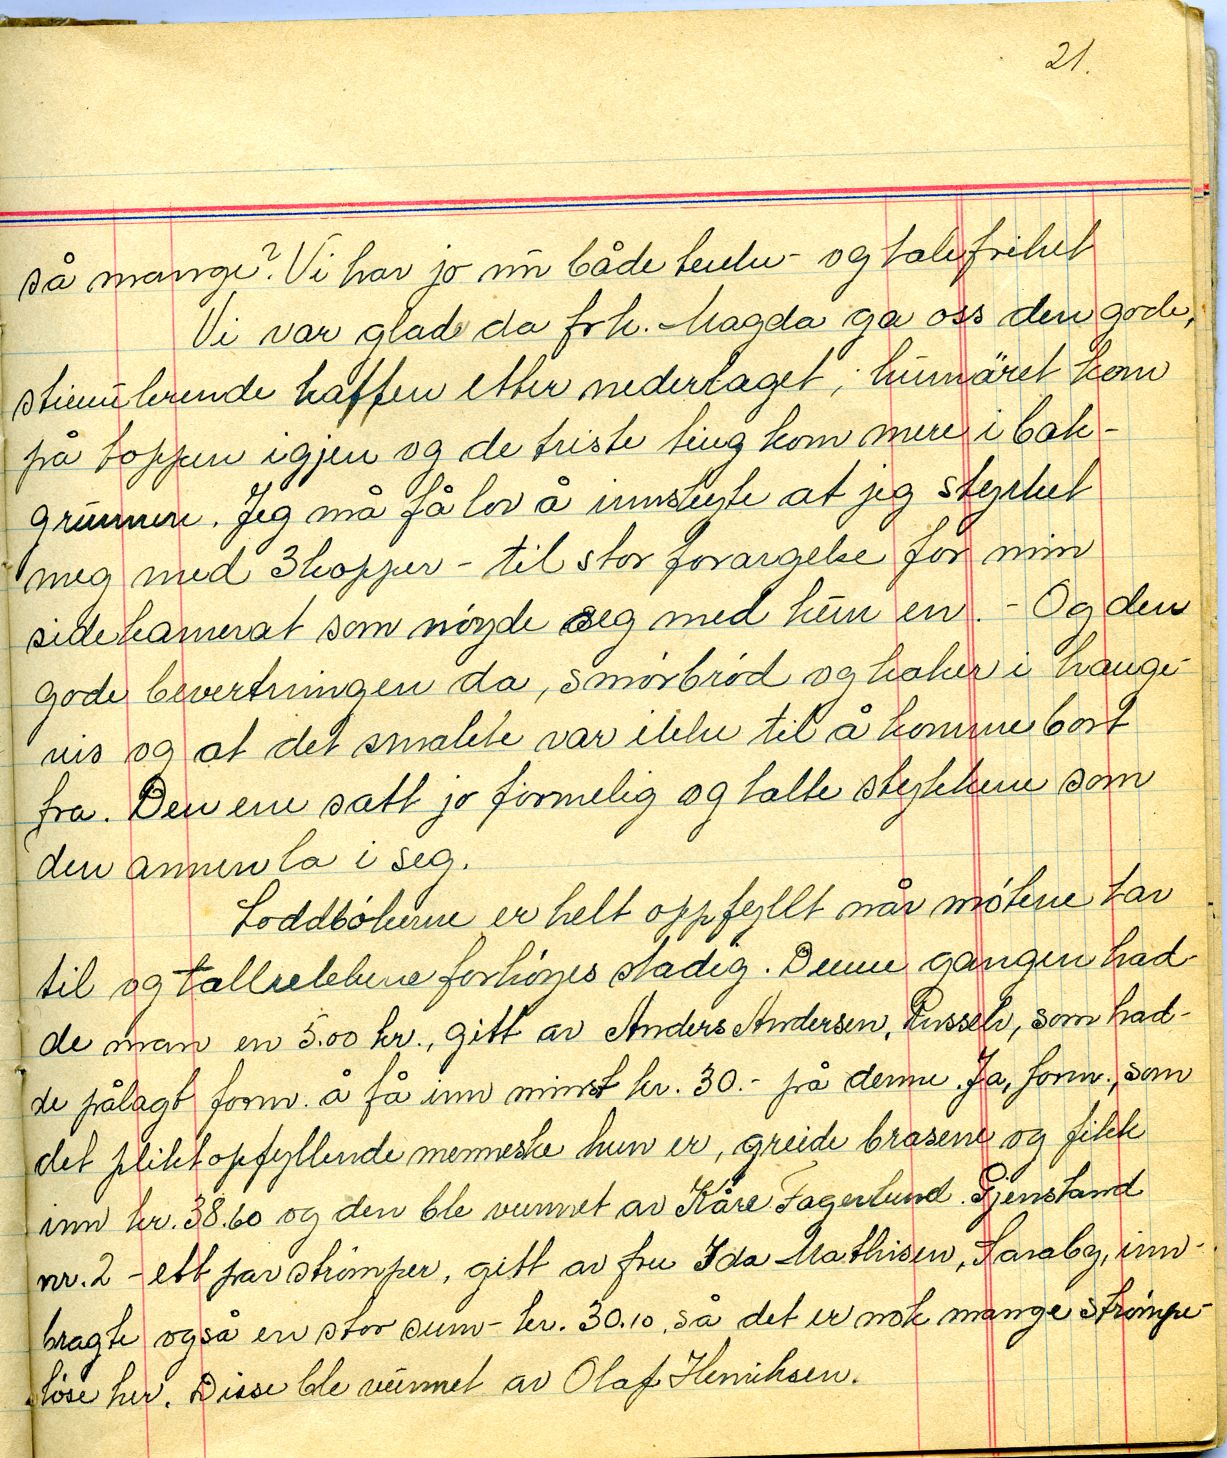 21.
så mange? Vi har jo nu både tenke- og talefrihet
Vi var glade da frk. Magda ga oss den gode,
stimulerende kaffen etter nederlaget, humøret kom
på toppen igjen og de triste ting kom mere i bak-
grunnen. Jeg må få lov å innskyte at jeg styrket
meg med 3 kopper - til stor forargelse for min
sidekamerat som nöyde seg med kun en. - Og den
gode bevertningen da, smörbröd og kaker i hauge-
vis og at det smakte var ikke til å komme bort
fra. Den ene satt jo formelig og talte stykkene som
den annen la i seg.
Loddbökene er helt oppfyllt når mötene tar
til og tallrekkene forhöyes stadig. Denne gangen had-
de man en 5.00 kr., gitt av Anders Andersen, Russelv, som had-
de pålagt form. å få inn minst kr. 30.- på denne. Ja, form., som
det pliktopfyllende menneske hun er, greide brasene og fikk
inn kr. 38.60 og den ble vunnet av Kåre Fagerlund. Gjenstand
nr. 2 - ett par strömper, gitt av fru Ida Mathisen, Saraby, inn-
bragte også en stor sum - kr. 30.10, så det er nok mange strömpe-
löse her. Disse ble vunnet av Olaf Henriksen.